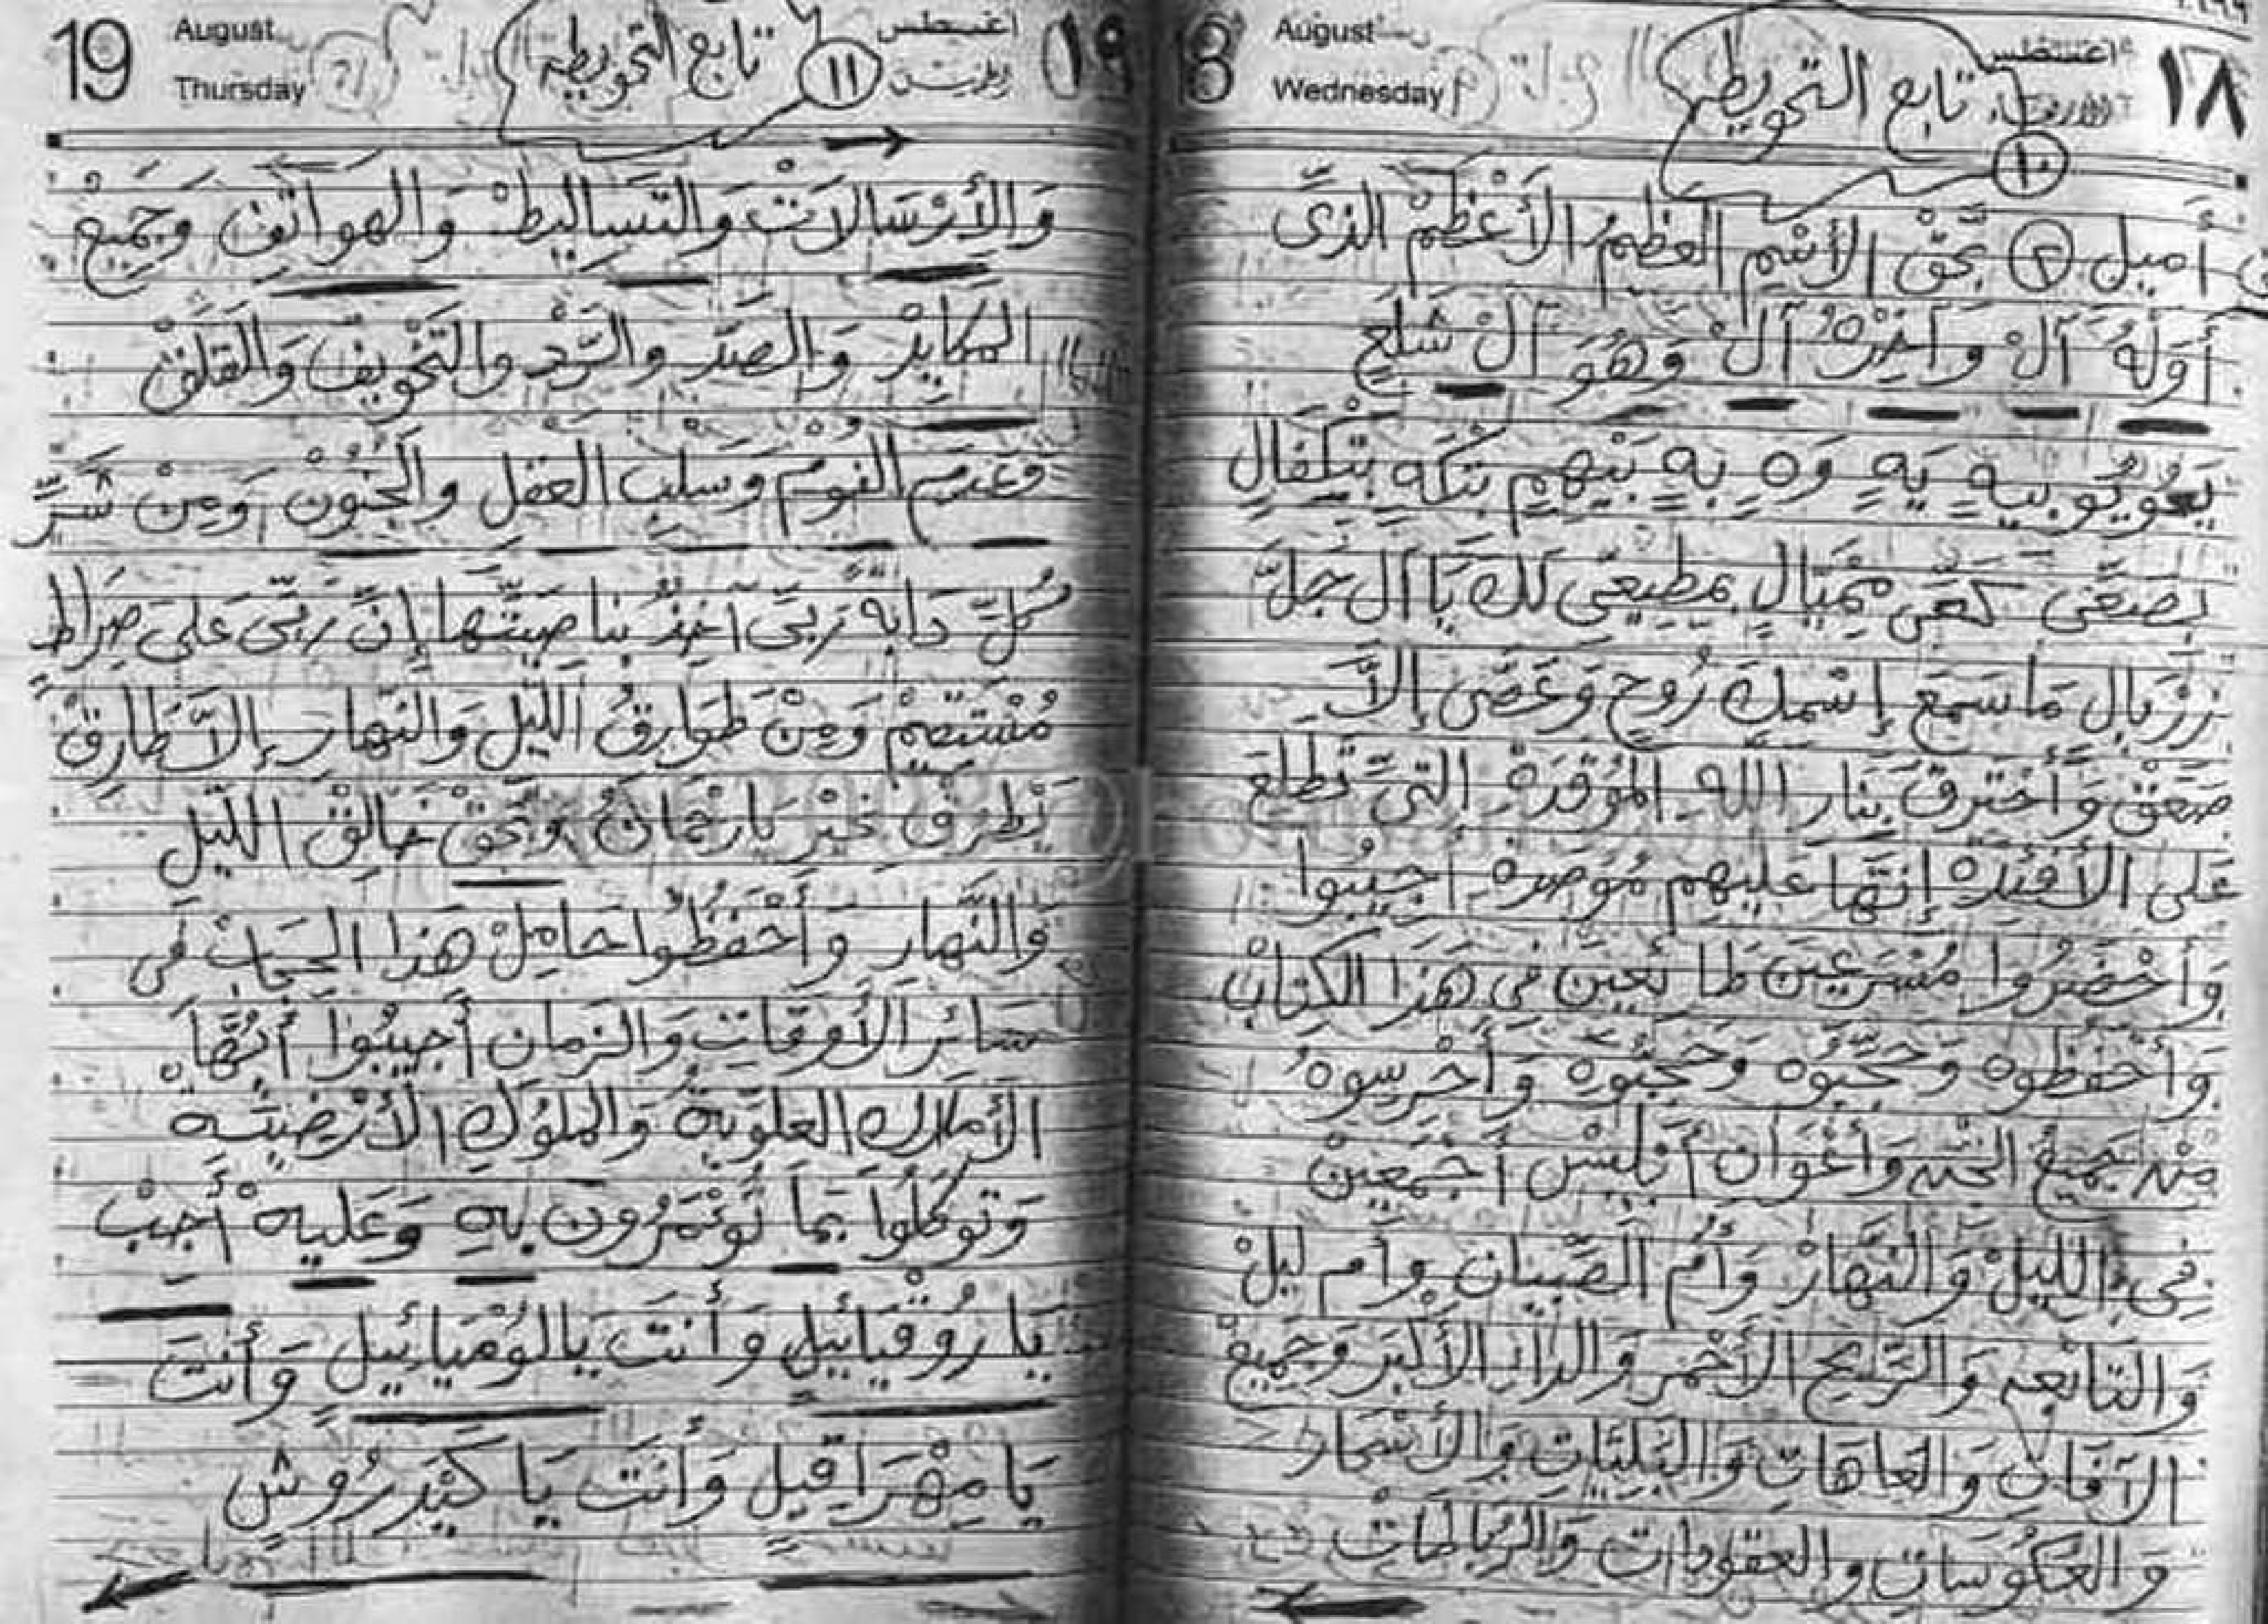 ١٨ اغسطس August 18 Wednesday
تابع التحويطه
١٠
أميل ٢ بَحَقْ الأسْمِ العَظِمُ الأعْظَمْ الذىَّ
أَوَلَهُ آلْ وآخِرْهُ آلْ وَهُوَ آلْ شَلَعِ
يَعُو يُوبيهٍ يَهٍ وَهٍ بِهٍ بَتِهِمٍ بَتْكَهٍ بَتَكْفَالٍ
بَصَعَّى كَعَّى مِّمْيَالٍ بمَطِيعَى لَكَ يَا آل جَلَّ
زَرْيَالِ مَا سَمَعَ إسْمِكَ رُوحٍ وَعَصَى إلَّا
صَعَقْ وَأحْتَرقَ بنَارِ اللَّهِ المُوقَدَةِ التِىَّ تَطَلِعَ
عَلى الأفئِدَهْ إنَّهَا عَليهِم مُوَصَدهْ أجِيبُوا
وَأحْضَرُوا مُسْرَعِينَ طَائعِينَ فِى هَذَا الكِتابْ
وَأحْفَظُوهْ وَحُجِّبُوهْ وَحَجِّبُوهْ وَأحْرِسِوهْ
مِنْ جَمِيعُ الجْنِ وَأعْوَان أبَلِيسْ أجْمَعِينْ
فِى اللِيلْ وَالنَّهَارْ وَأمُ الصِّبيَان وأم لِيلْ
وَالتَابَعِهِ وَالرَّيحِ الأحْمَر وَالدَاءِ الأكْبَر وَجَمِيعْ
الآفَاتِ وَالعَاهَاتِ وَالبَلِيَّاتِ وَالأسْحَار
وَالعَكُوسَاتِ والعقودات وَالرَّبَاطَاتْ
19 August Thursday اغسطس ١٩
تابع التحويطه
١١
وَالأرْسَالاَتْ وَالتَسَاليطْ وَالهَوَاتِفِ وَجَمِيعْ
المكَايِدْ وَالصَدّ والرَّدْ والتَخْوِيفْ وَالقَلقْ
وعَدَمِ النوْمْ وَسَلبِ العَقلِ والجُنُونْ وَمِنْ شَرَّ
كُلِّ دَابه رَبىَّ آخِذٌ بنا صِيَتَّهَا إنَّ رَبىَّ عَلَىَ صِرَاط
مُسْتَقِيمْ وَمِنْ طَوَارِقُ اللّيلِ وَالنَهَار إلاَّ طَارِقٌ
يَطْرَق خَيْرِ يَا رَحْمَانْ وَبَحَقْ خَالِقْ الليّل
وَالنَّهَار وَأحْفَظُوا حَامِلْ هَذا الحجَابْ فَى
سَائر الأوقَات وَالزَمَان أجِيبُوا أيُّتُهَا
الأمْلاَك العلوَيةْ وَالمُلوُكِ الأرْضِيَّةْ
وَتوكَلُوا بَمَا تُوْمَرُون بِهِ وَعَلَيهْ أجِبْ
يَا رُوقْيَائِيلِ وَأنتَ يَا لوُمْيَائِيل وَأنتَ
يَا مِهْرَاقِيلٍ وَأنَتَ يَا كَيْدَرُوشٍ